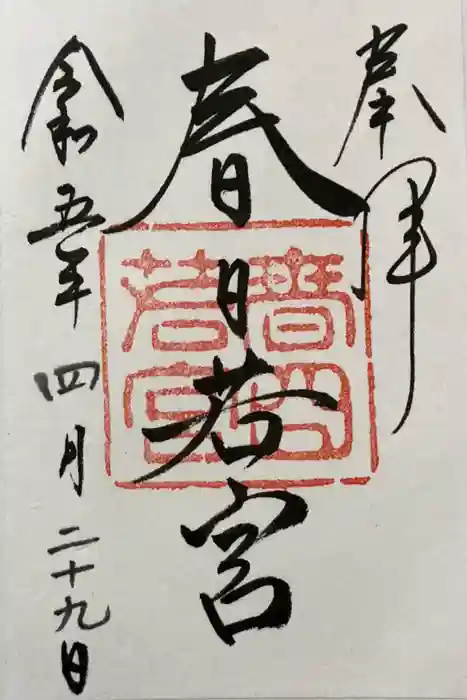 奉拝
春日若宮
令和五年四月二十九日